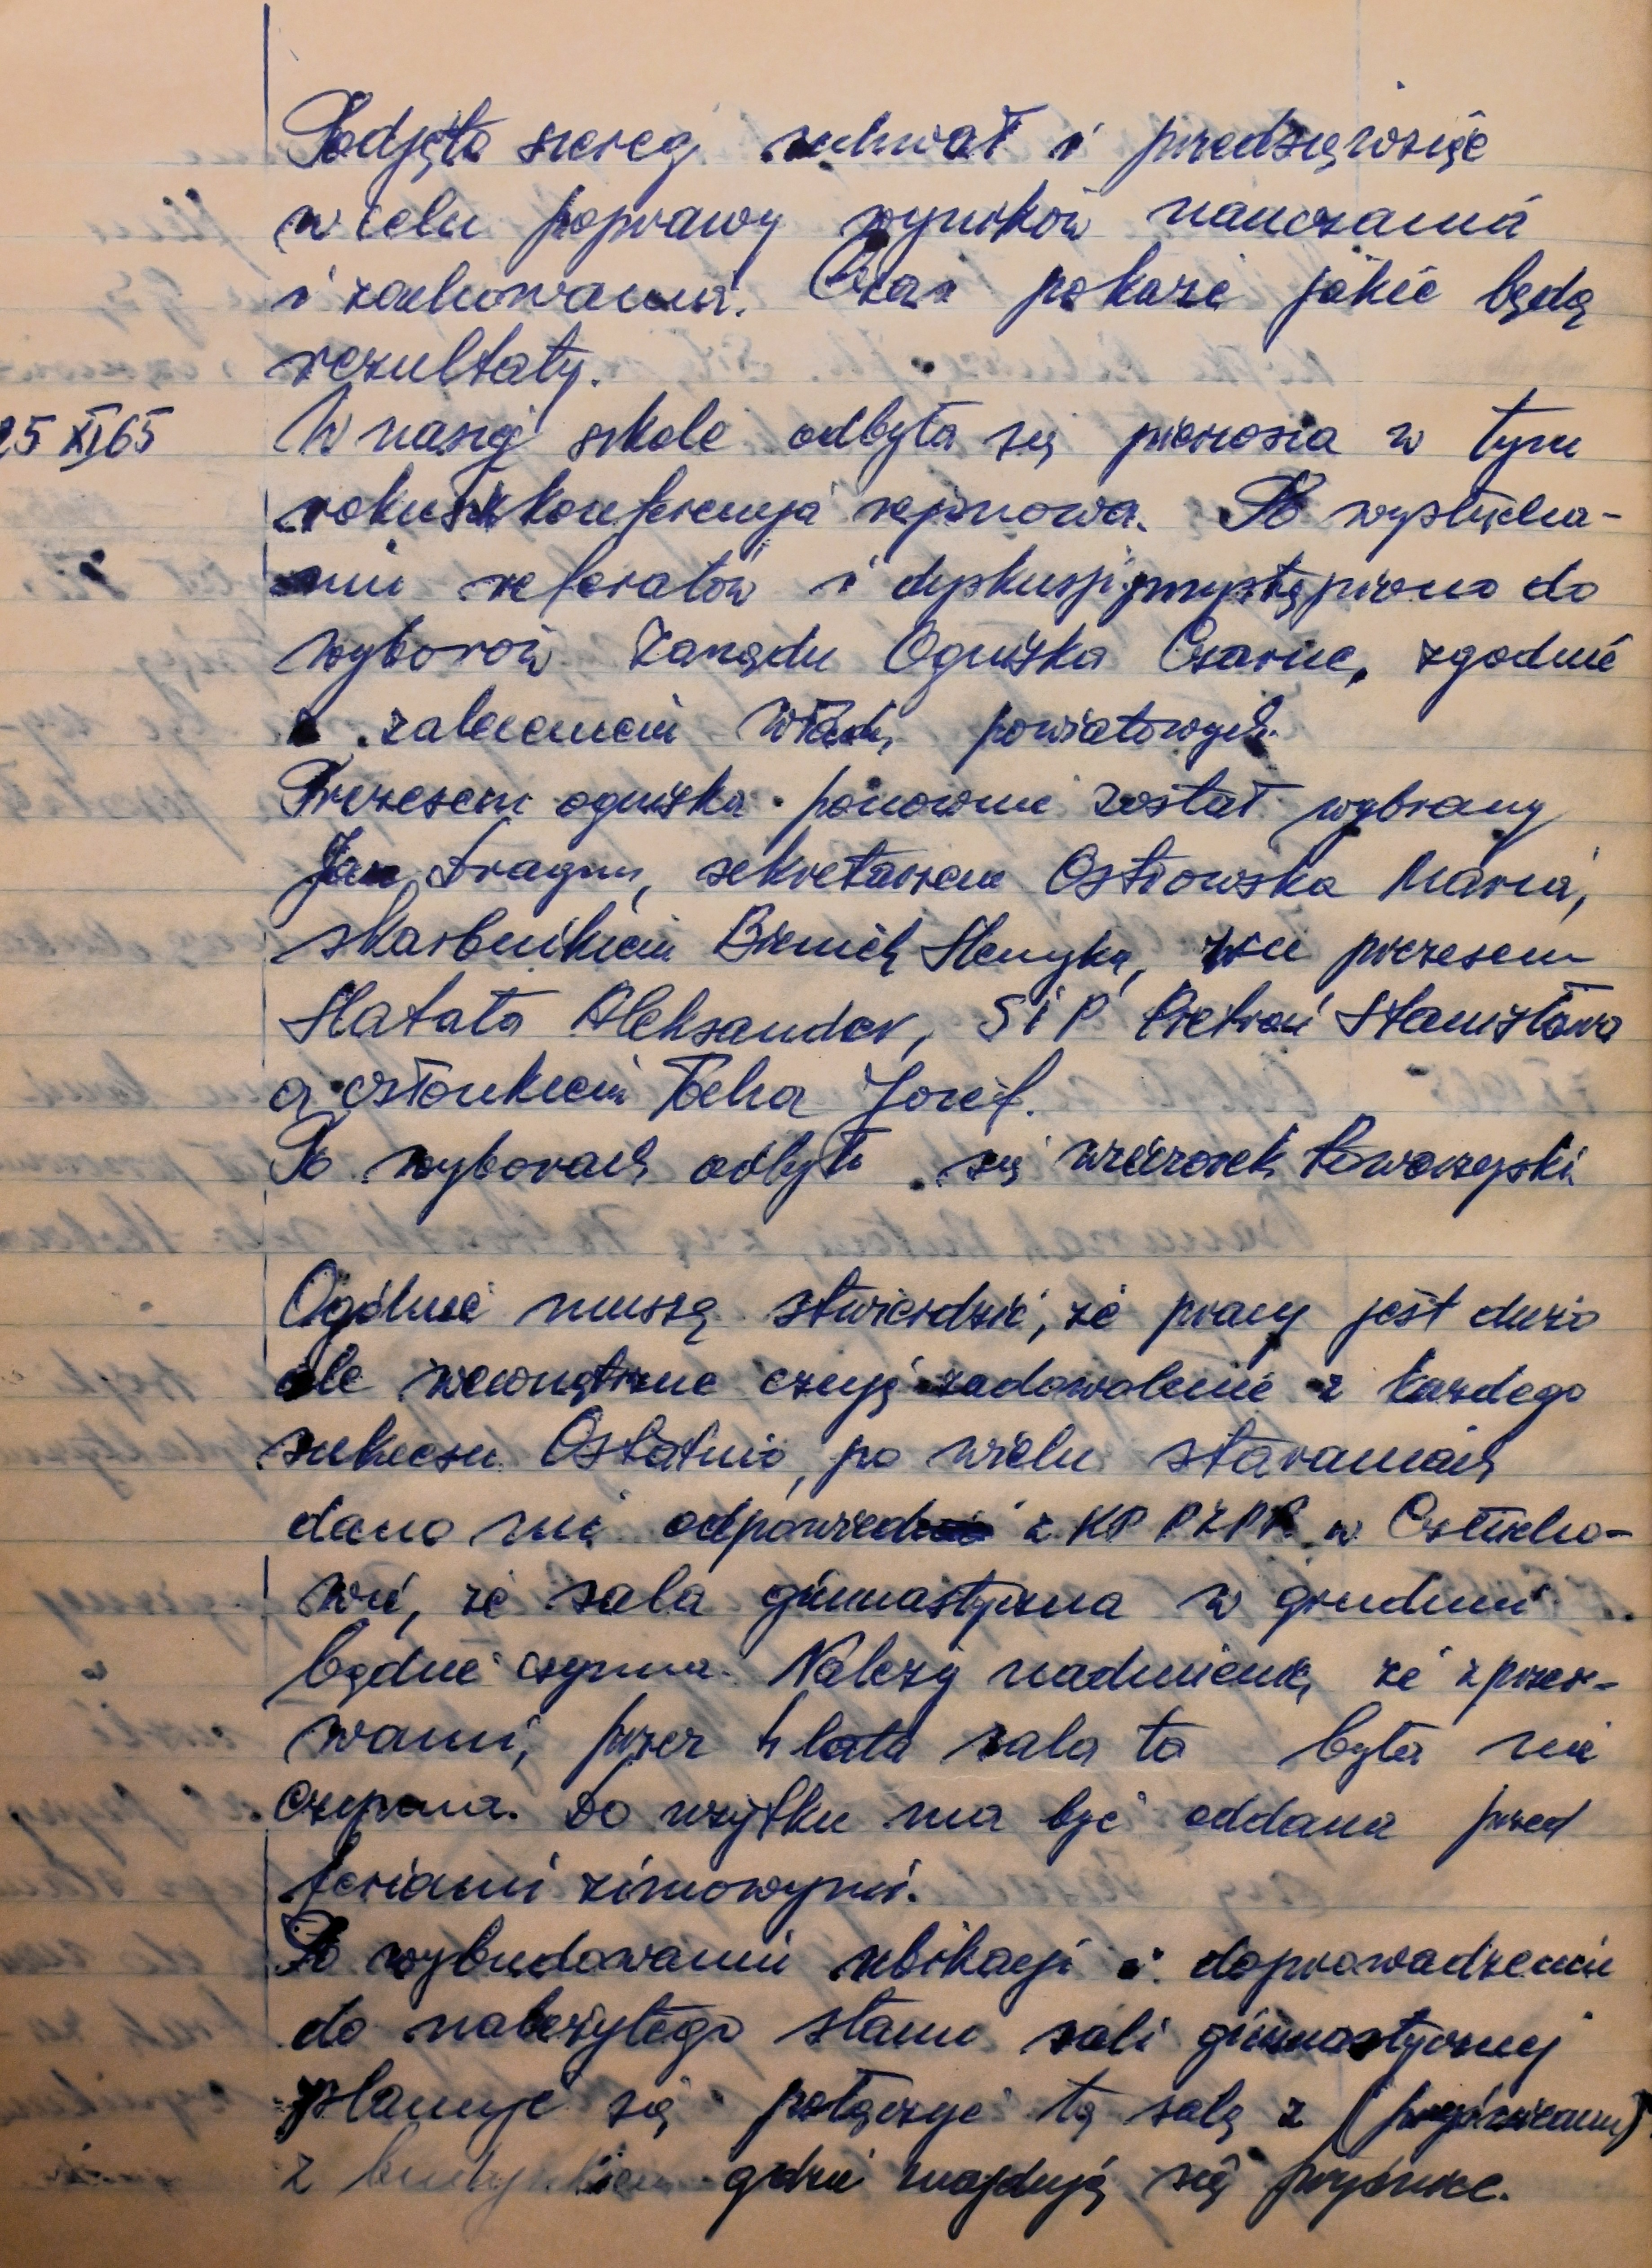 Podjęto szereg uchwał i przedsięwzięć
w celu poprawy wyników nauczania
i zachowania. Czas pokaże jakie będą
rezultaty.
25 XI 65 W naszej szkole odbyła się pierwsza w tym
roku konferencja rejonowa. Po wysłucha-
niu referatów i dyskusji przystąpiono do
wyborów Zarządu Ogniska Czarne, zgodnie
z zaleceniem władz powiatowych.
Prezesem ogniska ponownie został wybrany
Jan Dragun, sekretarzem Ostrowska Maria,
skarbnikiem Henryka, wice prezesem
Hatała Aleksander, S i P Pietroń Stanisława
a członkiem Tocha Józef.
Po wyborach odbył się wieczorek towarzyski
Ogólnie muszę stwierdzić, że pracy jest dużo
ale wewnętrzne czuję zadowolenie z każdego
sukcesu. Ostatnio, po wielu staraniach
dano mi odpowiedź z KP PZPR w Człucho-
wie, że sala gimnastyczna w grudniu
będzie czynna. Należy nadmienić, że z przer-
wami, przez 4 lata sala ta była nie
czynna. Do użytku ma być oddana przed
feriami zimowymi.
Po wybudowaniu ubikacji i doprowadzeniu
do należytego stanu sali gimnastycznej
planuje się połączyć tą salę z
z budynkiem gdzie znajdują się prycznice.